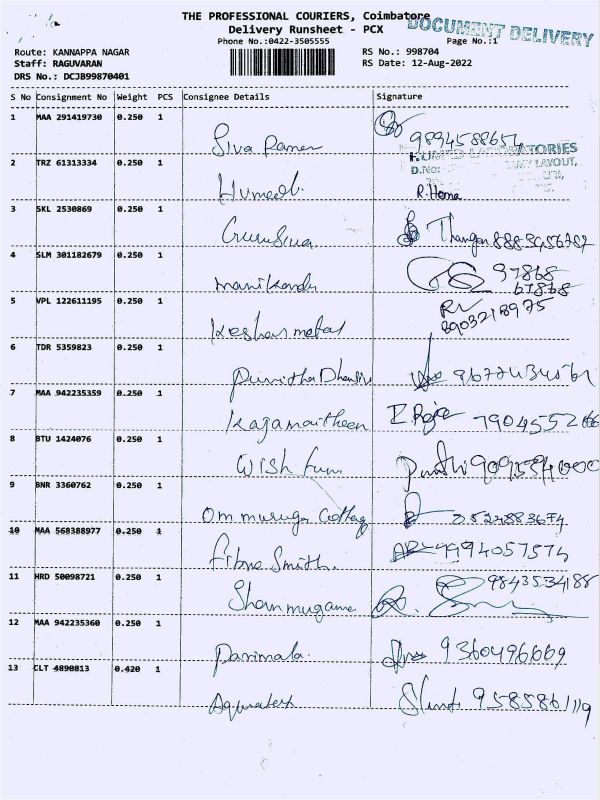 THE PROFESSIONAL COURIERS, Coimbatore
DOCUMENT DELIVERY
Delivery Runsheet - PCX
Phone No.:0422-3505555
Page No.:1
Route: KANNAPPA NAGAR
RS No.: 998704
Staff: RAGUVARAN
RS Date: 12-Aug-2022
DRS No.: DCJB99870401
S No Consignment No Weight PCS Consignee Details Signature
1 MAA 291419730 0.250 1
Siva Raman 9894588654
LABORATORIES
D.No: LAYOUT,
2 TRZ 61313334 0.250 1
Humed R. Hema
3 SKL 2530869 0.250 1
Guru Siva Thangan 8883456787
4 SLM 301182679 0.250 1
manikandn 97868
67868
5 VPL 122611195 0.250 1
Keshar metal 8903218975
6 TDR 5359823 0.250 1
Punitha
7 MAA 942235359 0.250 1
Kajamaitheen 7904552166
8 BTU 1424076 0.250 1
Wish
9 BNR 3360762 0.250 1
Om muruga Cottag
10 MAA 568388977 0.250 1
Smith 9994057574
11 HRD 50098721 0.250 1
Shanmugame 9843534188
12 MAA 942235360 0.250 1
Parimala 9360496669
13 CLT 4890813 0.420 1
Aquatech 9585861119